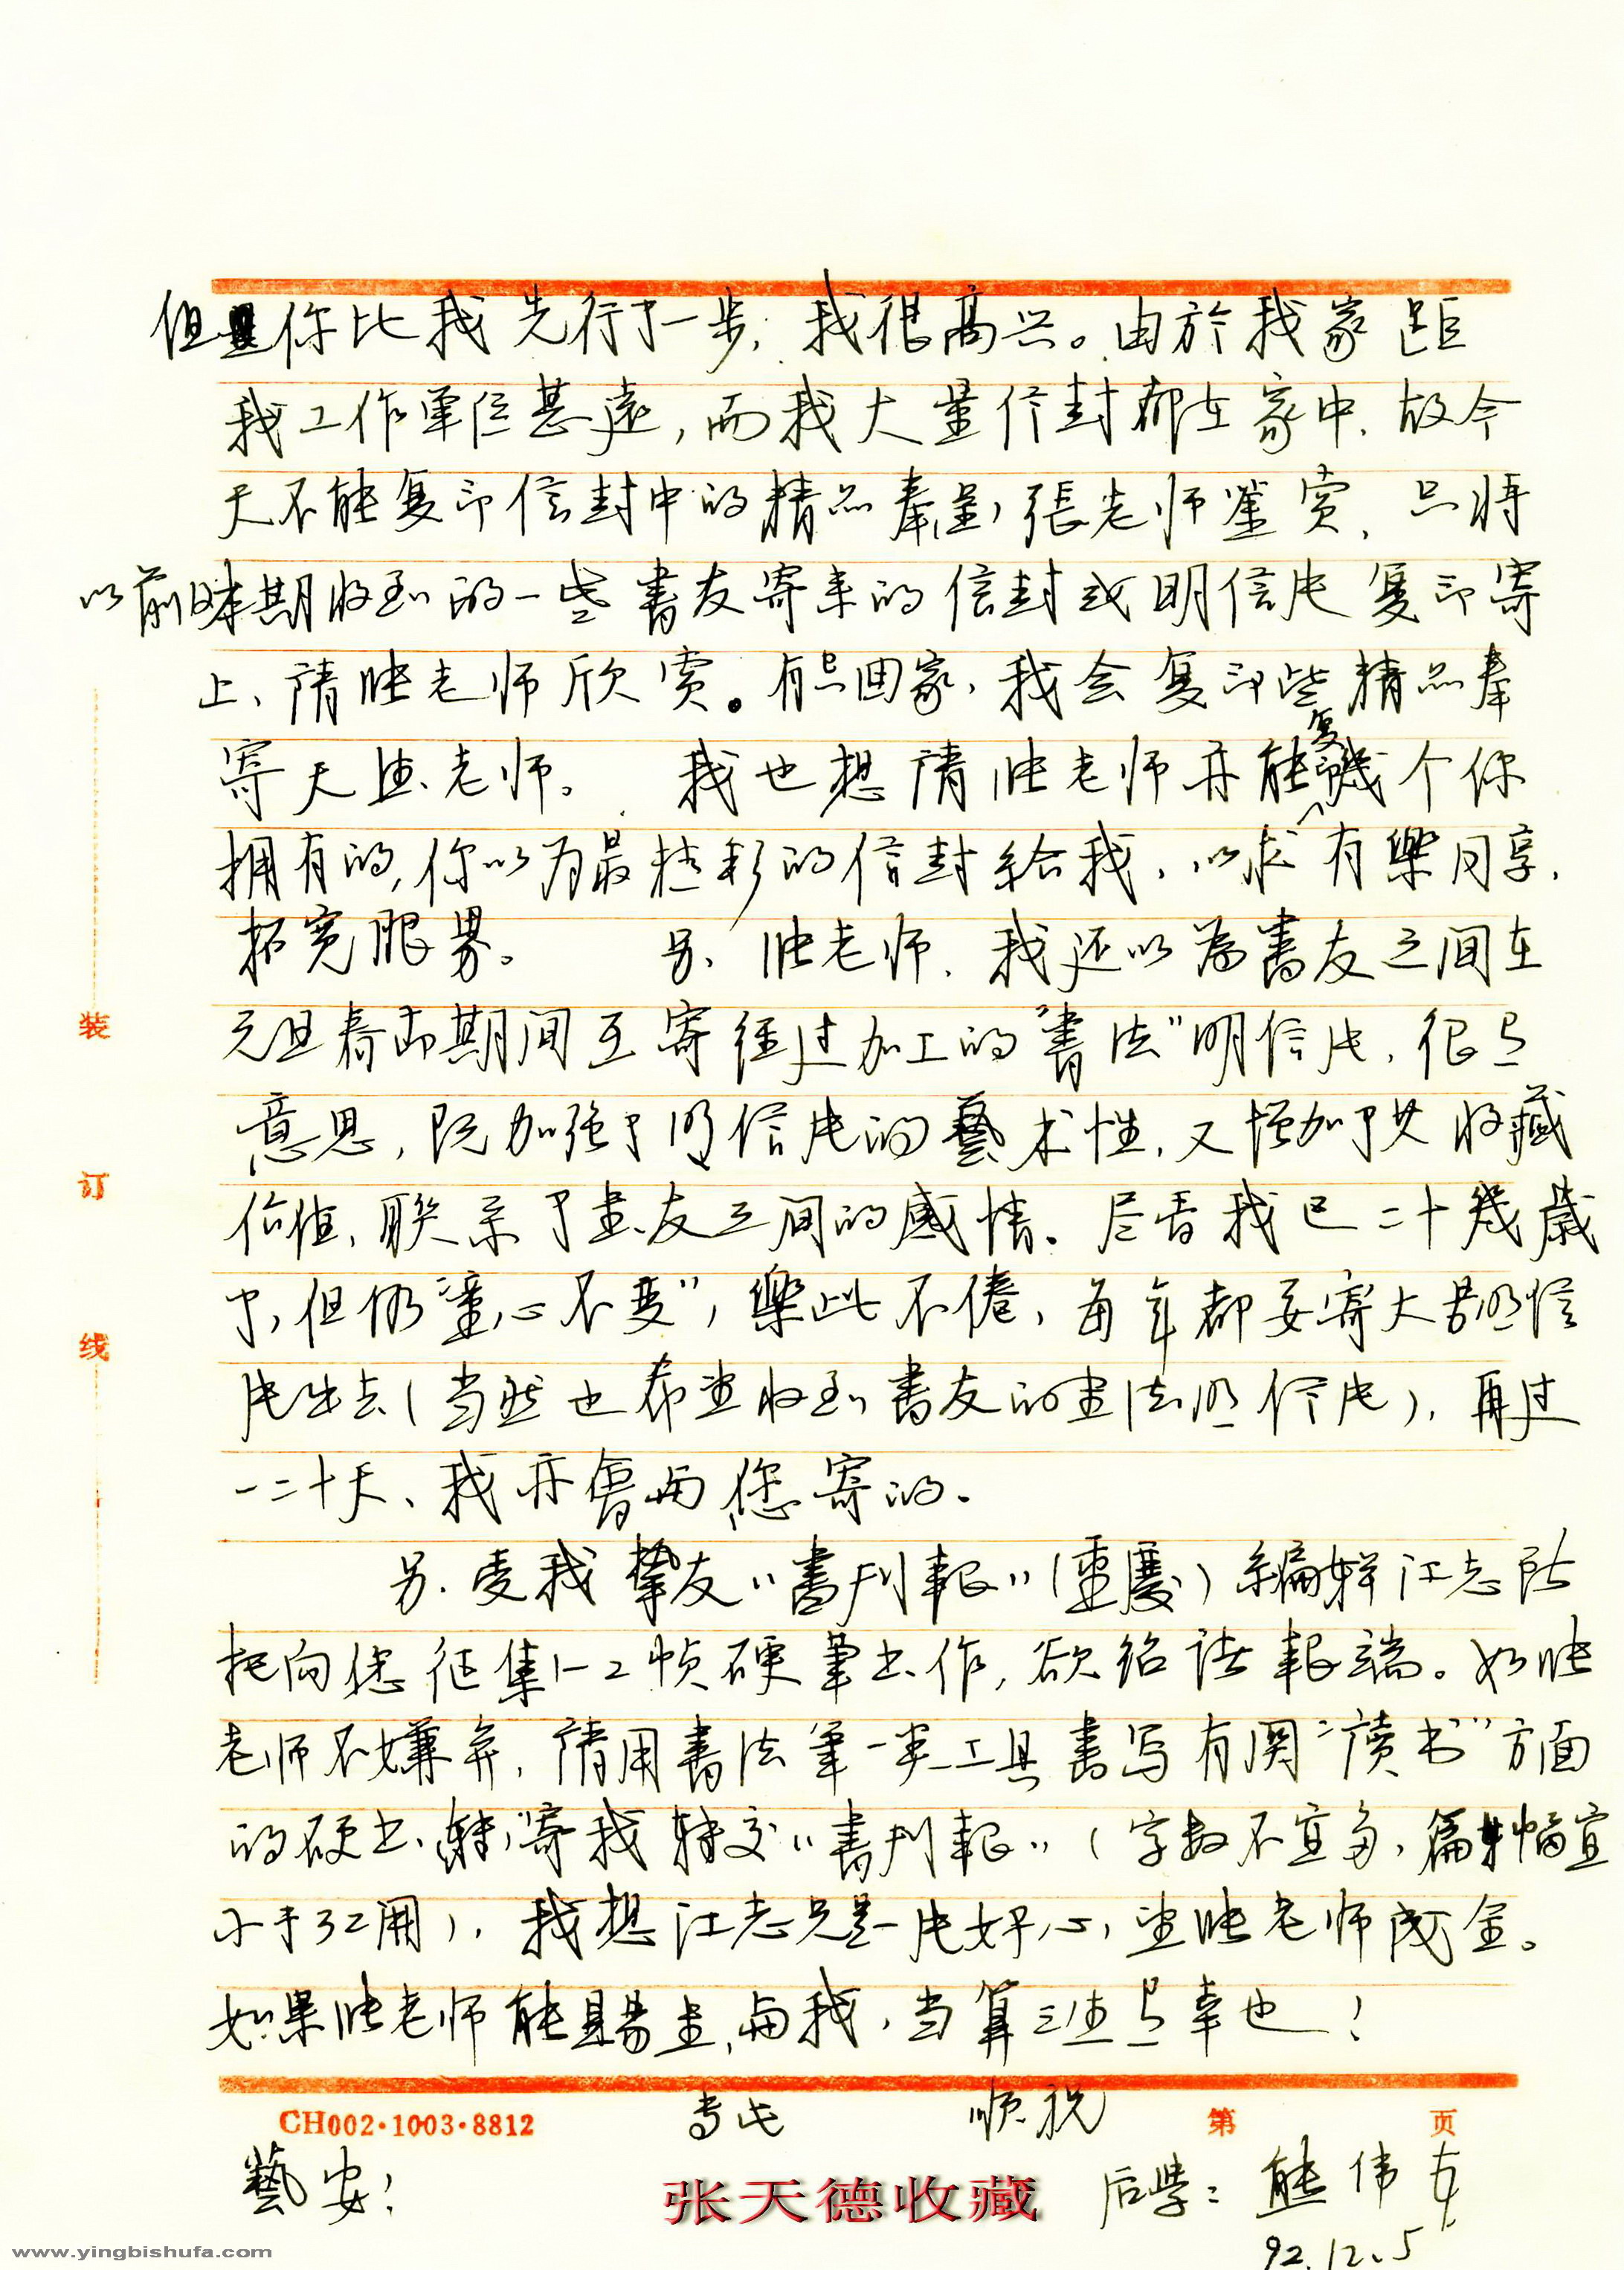 但是你比我先行了一步,我很高兴。由於我家距
我工作單位甚遠,而我大量信封都在家中,故今
天不能复印信封中的精品奉呈張老师鉴赏,只將
以前时期收到的一些書友寄来的信封或明信片复印寄
上,请张老师欣赏。有它回家,我会复印些精品奉
寄天德老师。我也想请张老师亦能复印幾个你
拥有的,你以为最精彩的信封给我,以求有樂同享,
拓宽眼界。 另,张老师,我还以為書友之间在
元旦春节期间互寄经过加工的“書法”明信片,很有
意思,既加强了明信片的藝术性,又增加了其收藏
价值,联系了书友之间的感情。尽管我已二十幾歲
了,但仍“童心不变”,樂此不倦,每年都要寄大量明信
片出去(当然也希望收到書友的书法明信片),再过
一二十天,我亦會向您寄的。
另,受我摯友“書刊報”(重慶)編輯江志所
托向您征集1-2帧硬筆书作,欲给诸報端。如张
老师不嫌弃,请用書法筆一类工具書写有関“读书”方面
的硬书,寄我转交“書刊報”(字数不宜多,篇幅宜
小于32開),我想江志兄是一片好心,望张老师成全。
如果张老师能賜书与我,当算三生有幸也!
CH002·1003·8812
专此 顺祝
第 页
藝安!
后学:熊伟
92.12.5
装
订
线
张天德收藏
www.yingbishufa.com